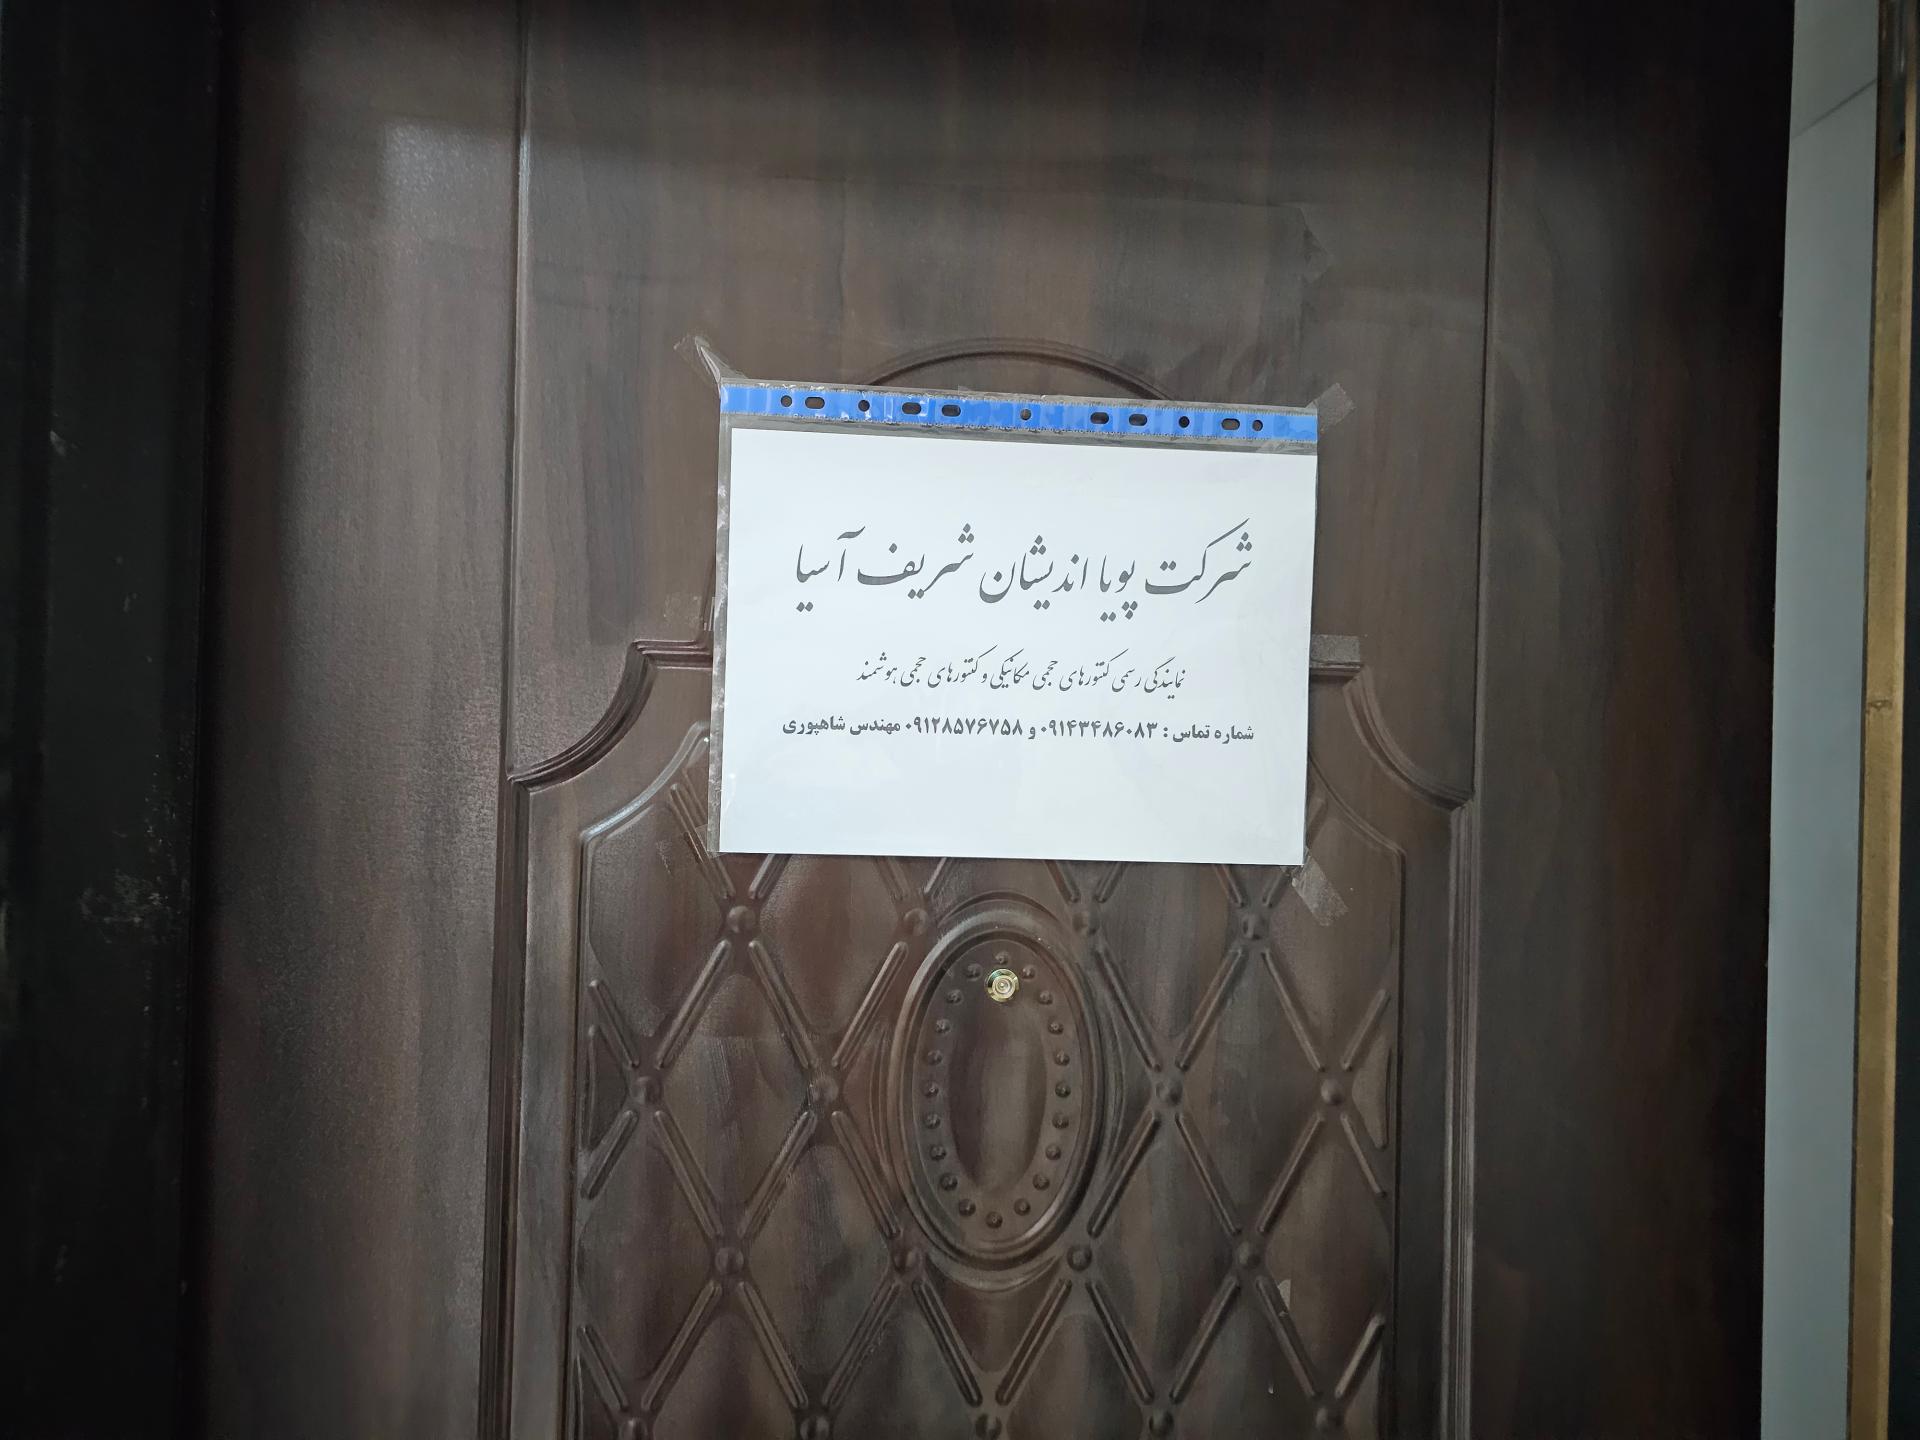 شرکت پویا اندیشان شریف آسیا
نمایندگی رسمی کنتورهای حجمی مکانیکی و کنتورهای حجمی هوشمند
شماره تماس : ۰۹۱۴۳۴۸۶۰۸۳ و ۰۹۱۲۸۵۷۶۷۵۸ مهندس شاهپوری